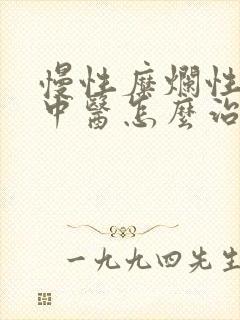 慢性糜爛性
中醫怎麼治
一九九四先生